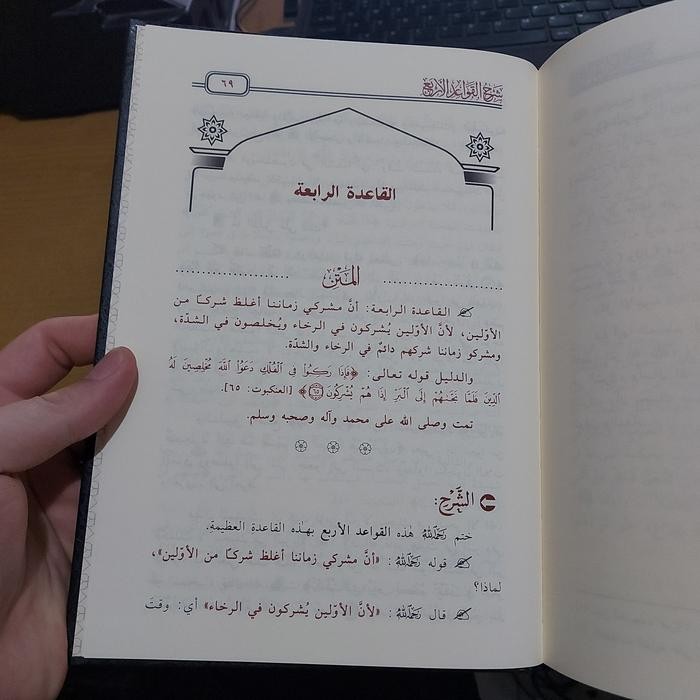 شرح القواعد الأربع
٦٩
القاعدة الرابعة
المتن
القاعدة الرابعة: أنَّ مشركي زماننا أغلظ شركًا من
الأوّلين، لأنَّ الأوّلين يُشركون في الرخاء ويُخلصون في الشدّة،
ومشركو زماننا شركهم دائمٌ في الرخاء والشدّة.
والدليل قوله تعالى: ﴿فَإِذَا رَكِبُوا۟ فِى ٱلْفُلْكِ دَعَوُا۟ ٱللَّهَ مُخْلِصِينَ لَهُ
ٱلدِّينَ فَلَمَّا نَجَّىٰهُمْ إِلَى ٱلْبَرِّ إِذَا هُمْ يُشْرِكُونَ ٦٥﴾ [العنكبوت: ٦٥].
تمت وصلى الله على محمد وآله وصحبه وسلم.
الشَّرْح:
ختم رَحِمَهُ اللهُ هٰذه القواعد الأربع بهـٰذه القاعدةِ العظيمةِ.
قوله رَحِمَهُ اللهُ: «أنَّ مشركي زماننا أغلظ شركًا من الأوّلين»،
لماذا؟
قال رَحِمَهُ اللهُ: «لأنَّ الأوّلين يُشركون في الرخاء» أي: وقتَ